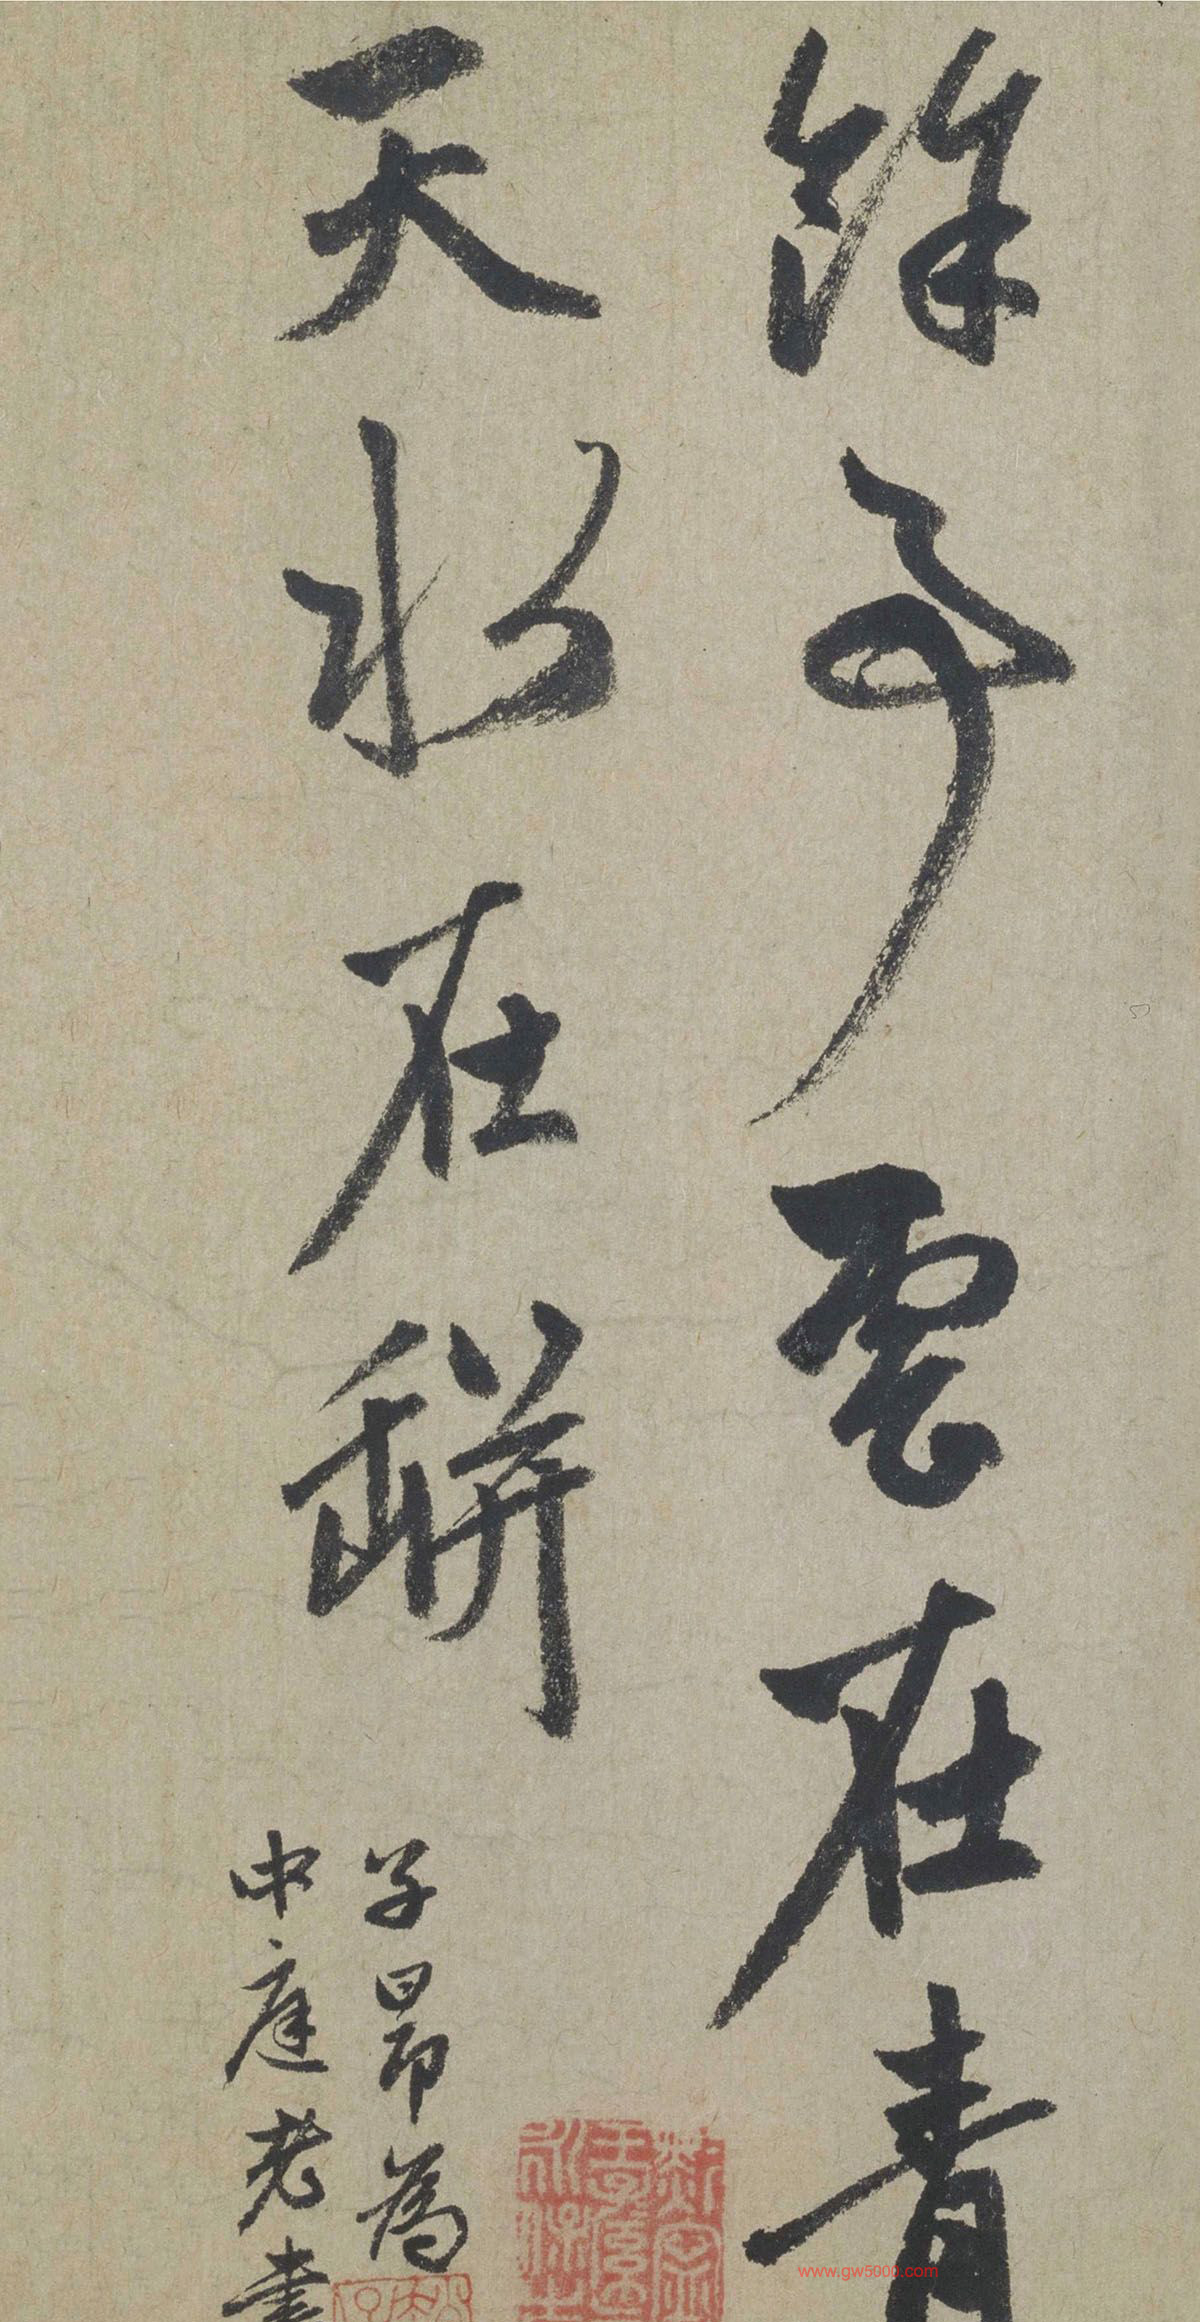 餘事雲在青
天水在缾
子昂為
中庭老書
www.gw5000.com